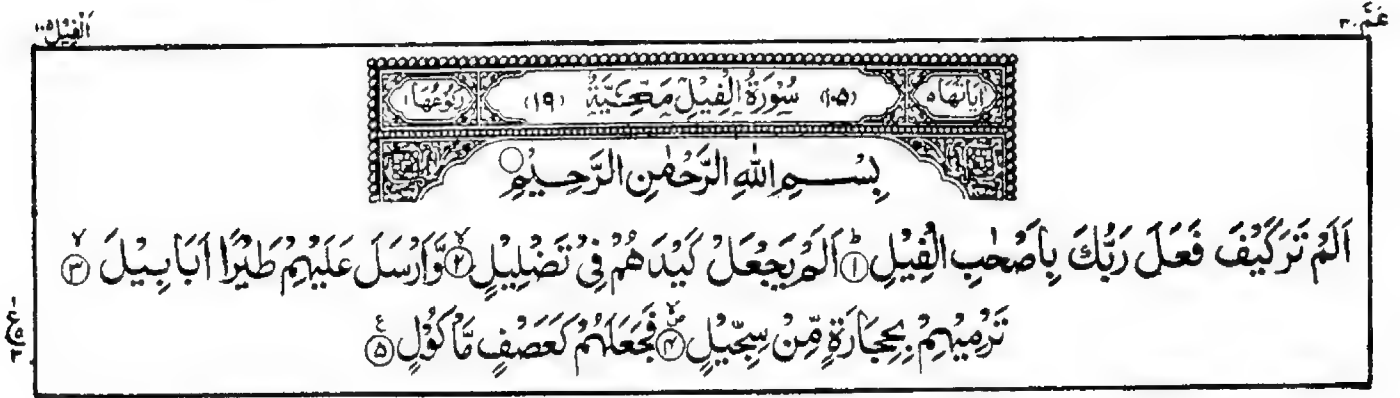 عَمَّ ٣٠
اَلْفِيْل ١٠٥
اٰيَاتُهَا ٥ (١٠٥) سُوْرَةُ الْفِيْلِ مَكِّيَّةٌ (١٩) رُكُوْعُهَا ١
بِسْمِ اللّٰهِ الرَّحْمٰنِ الرَّحِيْمِ
اَلَمْ تَرَ كَيْفَ فَعَلَ رَبُّكَ بِاَصْحٰبِ الْفِيْلِ ؕ﴿١﴾ اَلَمْ يَجْعَلْ كَيْدَهُمْ فِيْ تَضْلِيْلٍ ۙ﴿٢﴾ وَّاَرْسَلَ عَلَيْهِمْ طَيْرًا اَبَابِيْلَ ۙ﴿٣﴾
تَرْمِيْهِمْ بِحِجَارَةٍ مِّنْ سِجِّيْلٍ ﴿٤﴾ فَجَعَلَهُمْ كَعَصْفٍ مَّاْكُوْلٍ ﴿٥﴾